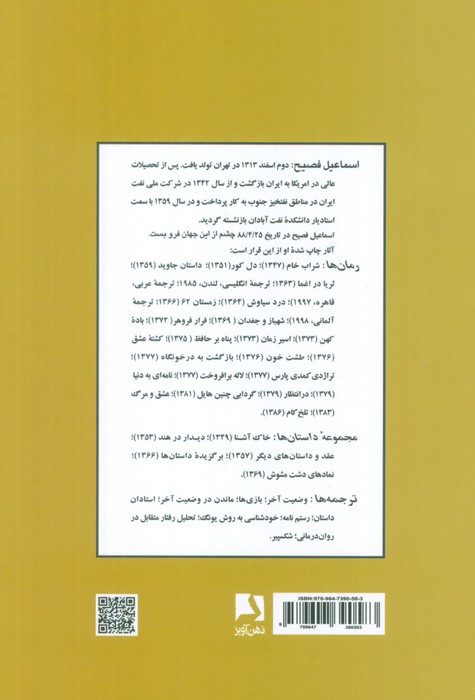 اسماعیل فصیح: دوم اسفند ۱۳۱۳ در تهران تولد یافت. پس از تحصیلات
عالی در امریکا به ایران بازگشت و از سال ۱۳۴۲ در شرکت ملی نفت
ایران در مناطق نفتخیز جنوب به کار پرداخت و در سال ۱۳۵۹ با سمت
استادیار دانشکدهٔ نفت آبادان بازنشسته گردید.
اسماعیل فصیح در تاریخ ۸۸/۴/۲۵ چشم از این جهان فرو بست.
آثار چاپ شدهٔ او از این قرار است:
رمان‌ها: شراب خام (۱۳۴۷)؛ دل کور(۱۳۵۱)؛ داستان جاوید (۱۳۵۹)؛
ثریا در اغما (۱۳۶۳؛ ترجمهٔ انگلیسی، لندن، ۱۹۸۵؛ ترجمهٔ عربی،
قاهره، ۱۹۹۷)؛ درد سیاوش (۱۳۶۴)؛ زمستان ۶۲ (۱۳۶۶؛ ترجمهٔ
آلمانی، ۱۹۹۸)؛ شهباز و جغدان (۱۳۶۹)؛ فرار فروهر (۱۳۷۲)؛ بادهٔ
کهن (۱۳۷۳)؛ اسیر زمان (۱۳۷۳)؛ پناه بر حافظ (۱۳۷۵)؛ کشتهٔ عشق
(۱۳۷۶)؛ طشت خون (۱۳۷۶)؛ بازگشت به درخونگاه (۱۳۷۷)؛
تراژدی‌کمدی پارس (۱۳۷۷)؛ لاله برافروخت (۱۳۷۷)؛ نامه‌ای به دنیا
(۱۳۷۹)؛ درانتظار (۱۳۷۹)؛ گردابی چنین هایل (۱۳۸۱)؛ عشق و مرگ
(۱۳۸۳)؛ تلخ‌کام (۱۳۸۶).
مجموعهٔ داستان‌ها: خاک آشنا (۱۳۴۹)؛ دیدار در هند (۱۳۵۳)؛
عقد و داستان‌های دیگر (۱۳۵۷)؛ برگزیدهٔ داستان‌ها (۱۳۶۶)؛
نمادهای دشت مشوش (۱۳۶۹).
ترجمه‌ها: وضعیت آخر؛ بازی‌ها؛ ماندن در وضعیت آخر؛ استادان
داستان؛ رستم نامه؛ خودشناسی به روش یونگ؛ تحلیل رفتار متقابل در
روان‌درمانی؛ شکسپیر.
ISBN:978-964-7390-58-3
9 789647 390583
ذهن‌آویز